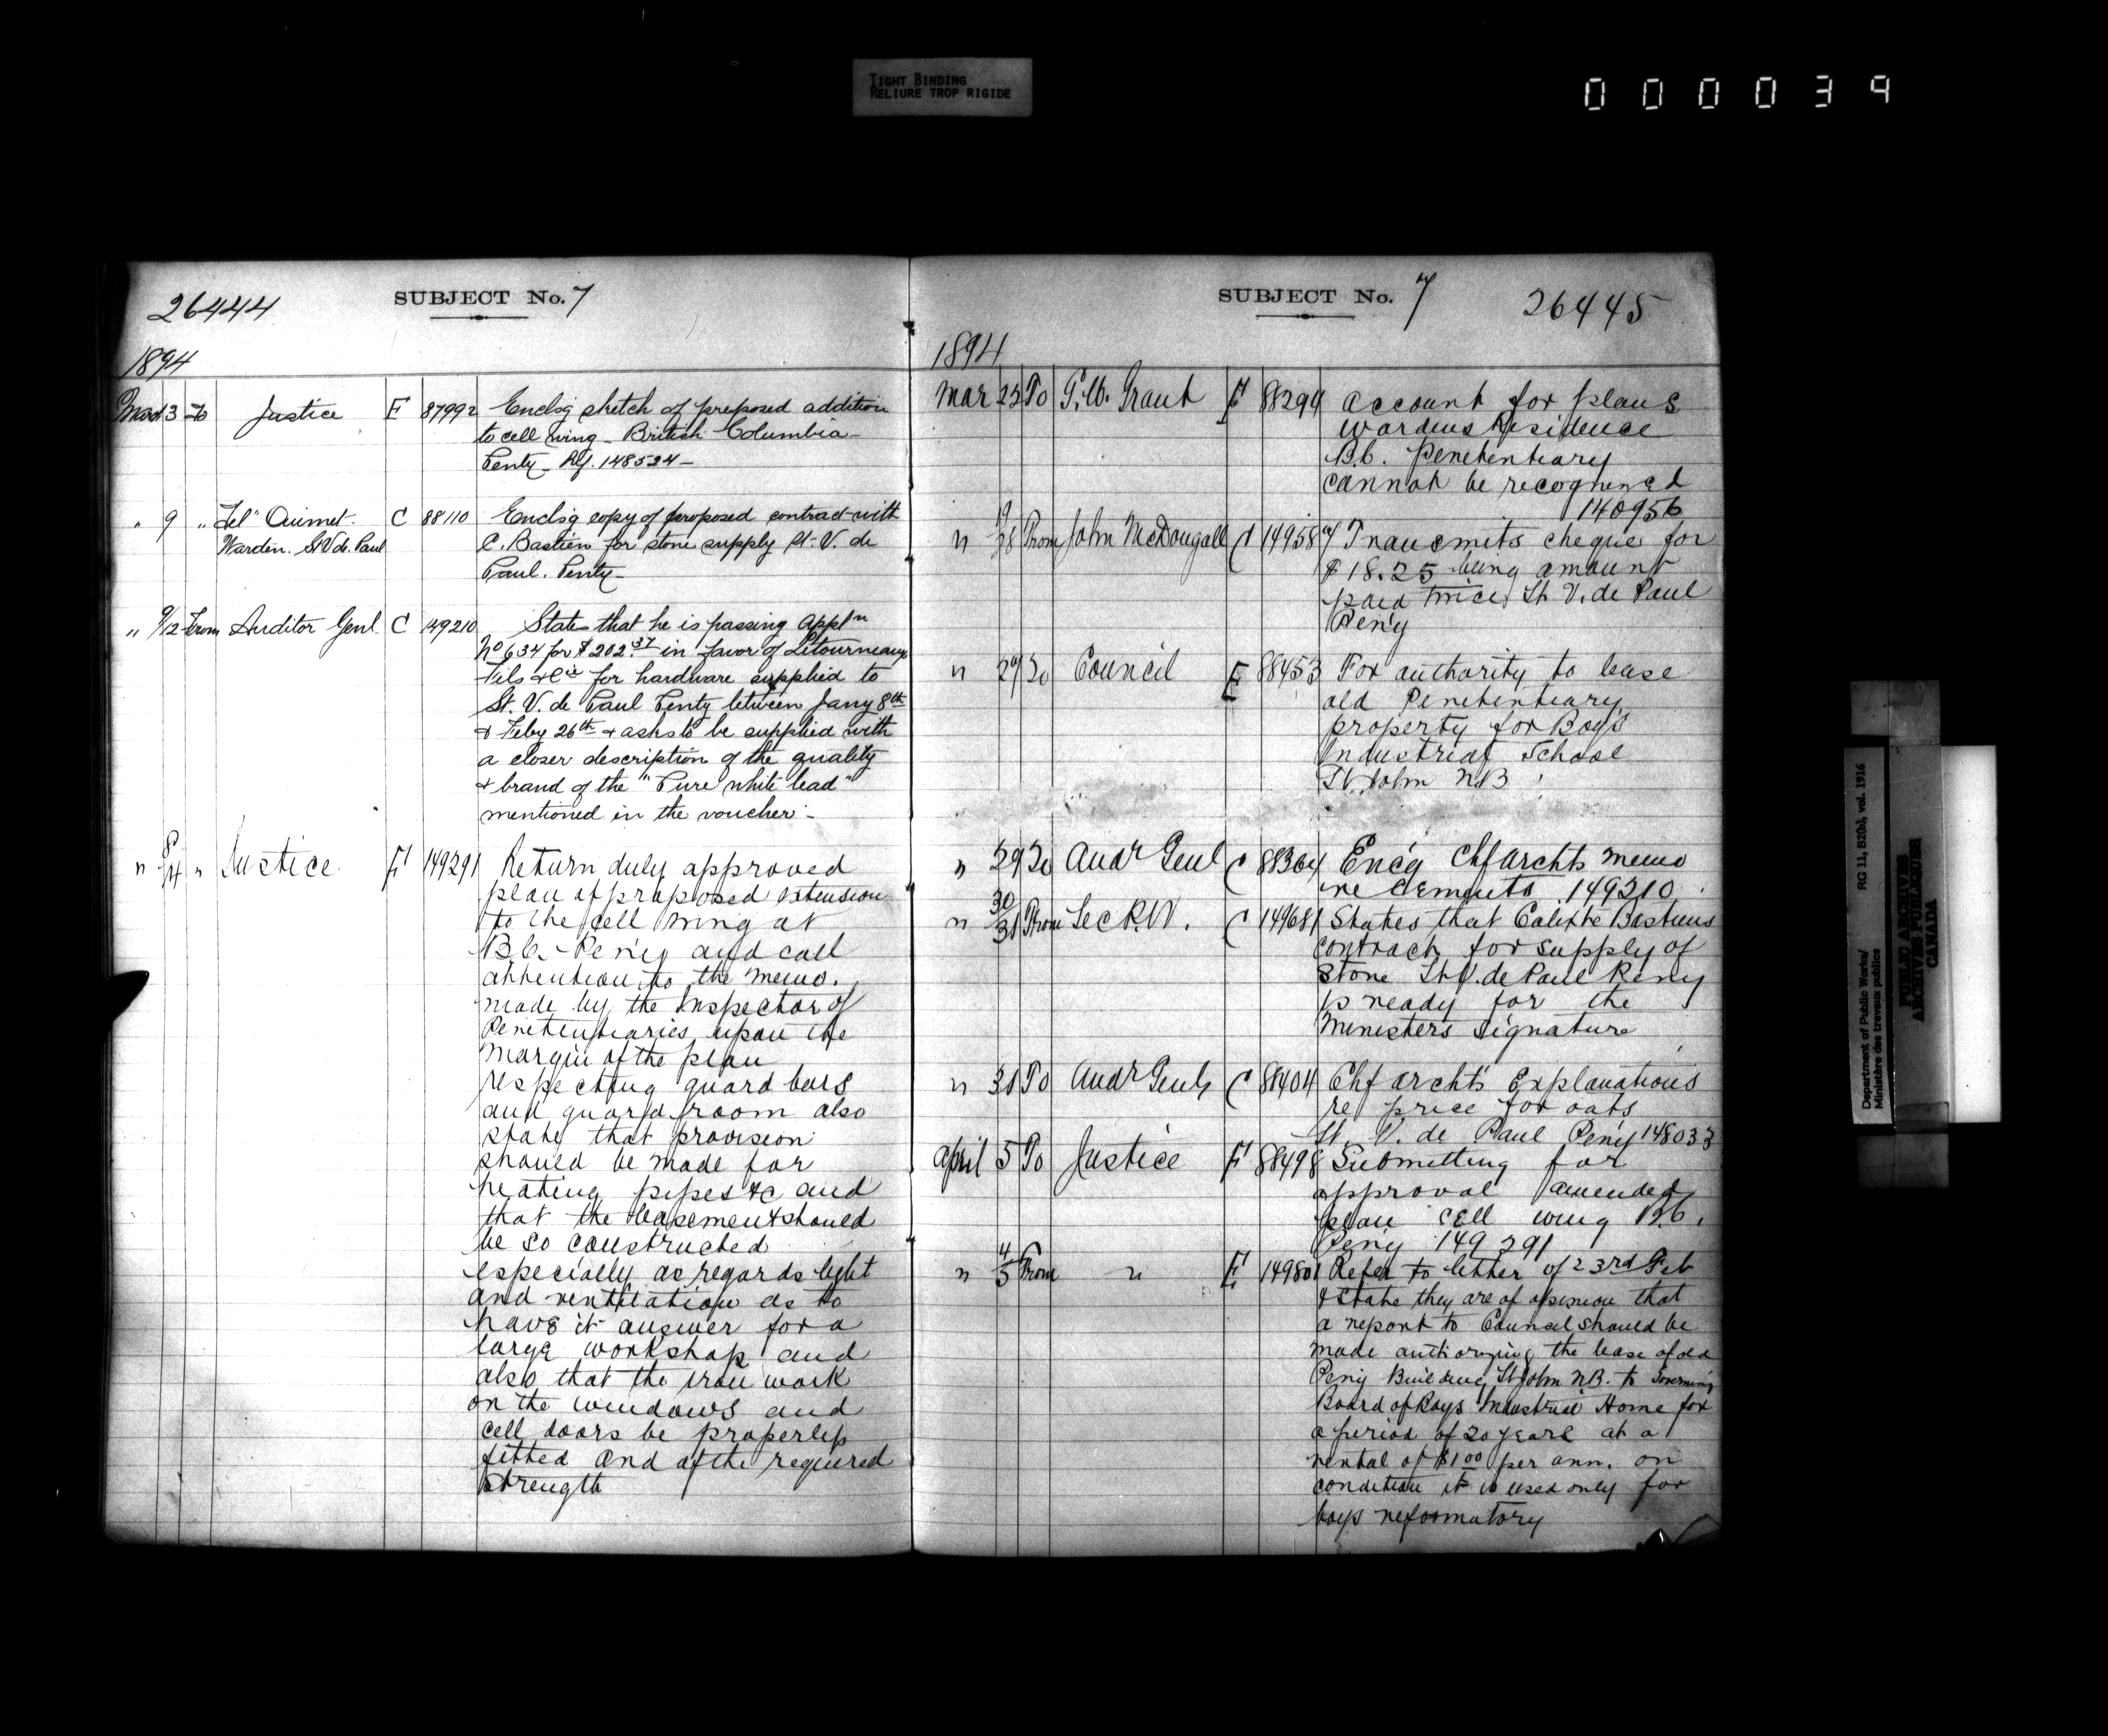 TIGHT BINDING
RELIURE TROP RIGIDE
000039
26444
SUBJECT No. 7
1894
3 To Justice E 87992 Enclsg sketch of proposed addition
to cell wing - British Columbia -
Penty - Ref. 148524 -
" 9 " Tel" Ouimet. C 88110 Enclsg copy of proposed contract with
Warden. St V de. Paul
C. Bastien for stone supply St. V. de
Paul. Penty -
" 9/12 From Auditor Genl C 149210 States that he is passing appln
No 634 for $202.37 in favor of Letourneau
Fils & Cie for hardware supplied to
St. V. de Paul Penty between Jany 8th
& Feby 26th & asks to be supplied with
a closer description of the quality
& brand of the "Pure white lead"
mentioned in the voucher -
" 8/14 " Justice E 149291 Return duly approved
plan of proposed extension
to the cell wing at
B.C. Peny and call
attention to the memo.
made by the Inspector of
Penitentiaries upon the
margin of the plan
respecting guard bars
and guard room also
state that provision
should be made for
heating pipes &c and
that the basement should
be so constructed
especially as regards light
and ventilation as to
have it answer for a
large workshop and
also that the iron work
on the windows and
cell doors be properly
fitted and of the required
strength
SUBJECT No. 7
26445
1894
Mar 22 To G.W. Grant E 88294 Account for plans
wardens Residence
B.C. Penetentiary
cannot be recognized
140956
" 19/28 From John McDougall C 14958 Transmits cheque for
$18.25 being amount
paid twice, St V. de Paul
Peny
" 29 To Council E 88453 For authority to lease
old Penetentiary
property for Boys
Industrial School
St. John N.B
" 29 To Audr Genl C 88364 Encg Chf Archts memo
re Cements 149210
" 30/31 From Sec R.W. C 149681 States that Calixte Bastiens
contract for supply of
stone St V. de Paul Peny
is ready for the
Ministers signature
" 31 To Audr Genl C 88404 Chf archts Explanations
re price for oats
St. V. de Paul Peny 148033
April 5 To Justice E 88498 Submitting for
approval amended
plan cell wing B.C.
Peny 149291
" 4/5 From " E 149801 Refer to letter of 23rd Feb
& state they are of opinion that
a report to Council should be
made authorizing the lease of old
Peny Building St John N.B. to Governing
Board of Boys Industrial Home for
a period of 20 years at a
rental of $1.00 per ann. on
condition it is used only for
boys reformatory
Department of Public Works/
Ministère des travaux publics
RG 11, B2(b), vol. 1916
PUBLIC ARCHIVES
ARCHIVES PUBLIQUES
CANADA